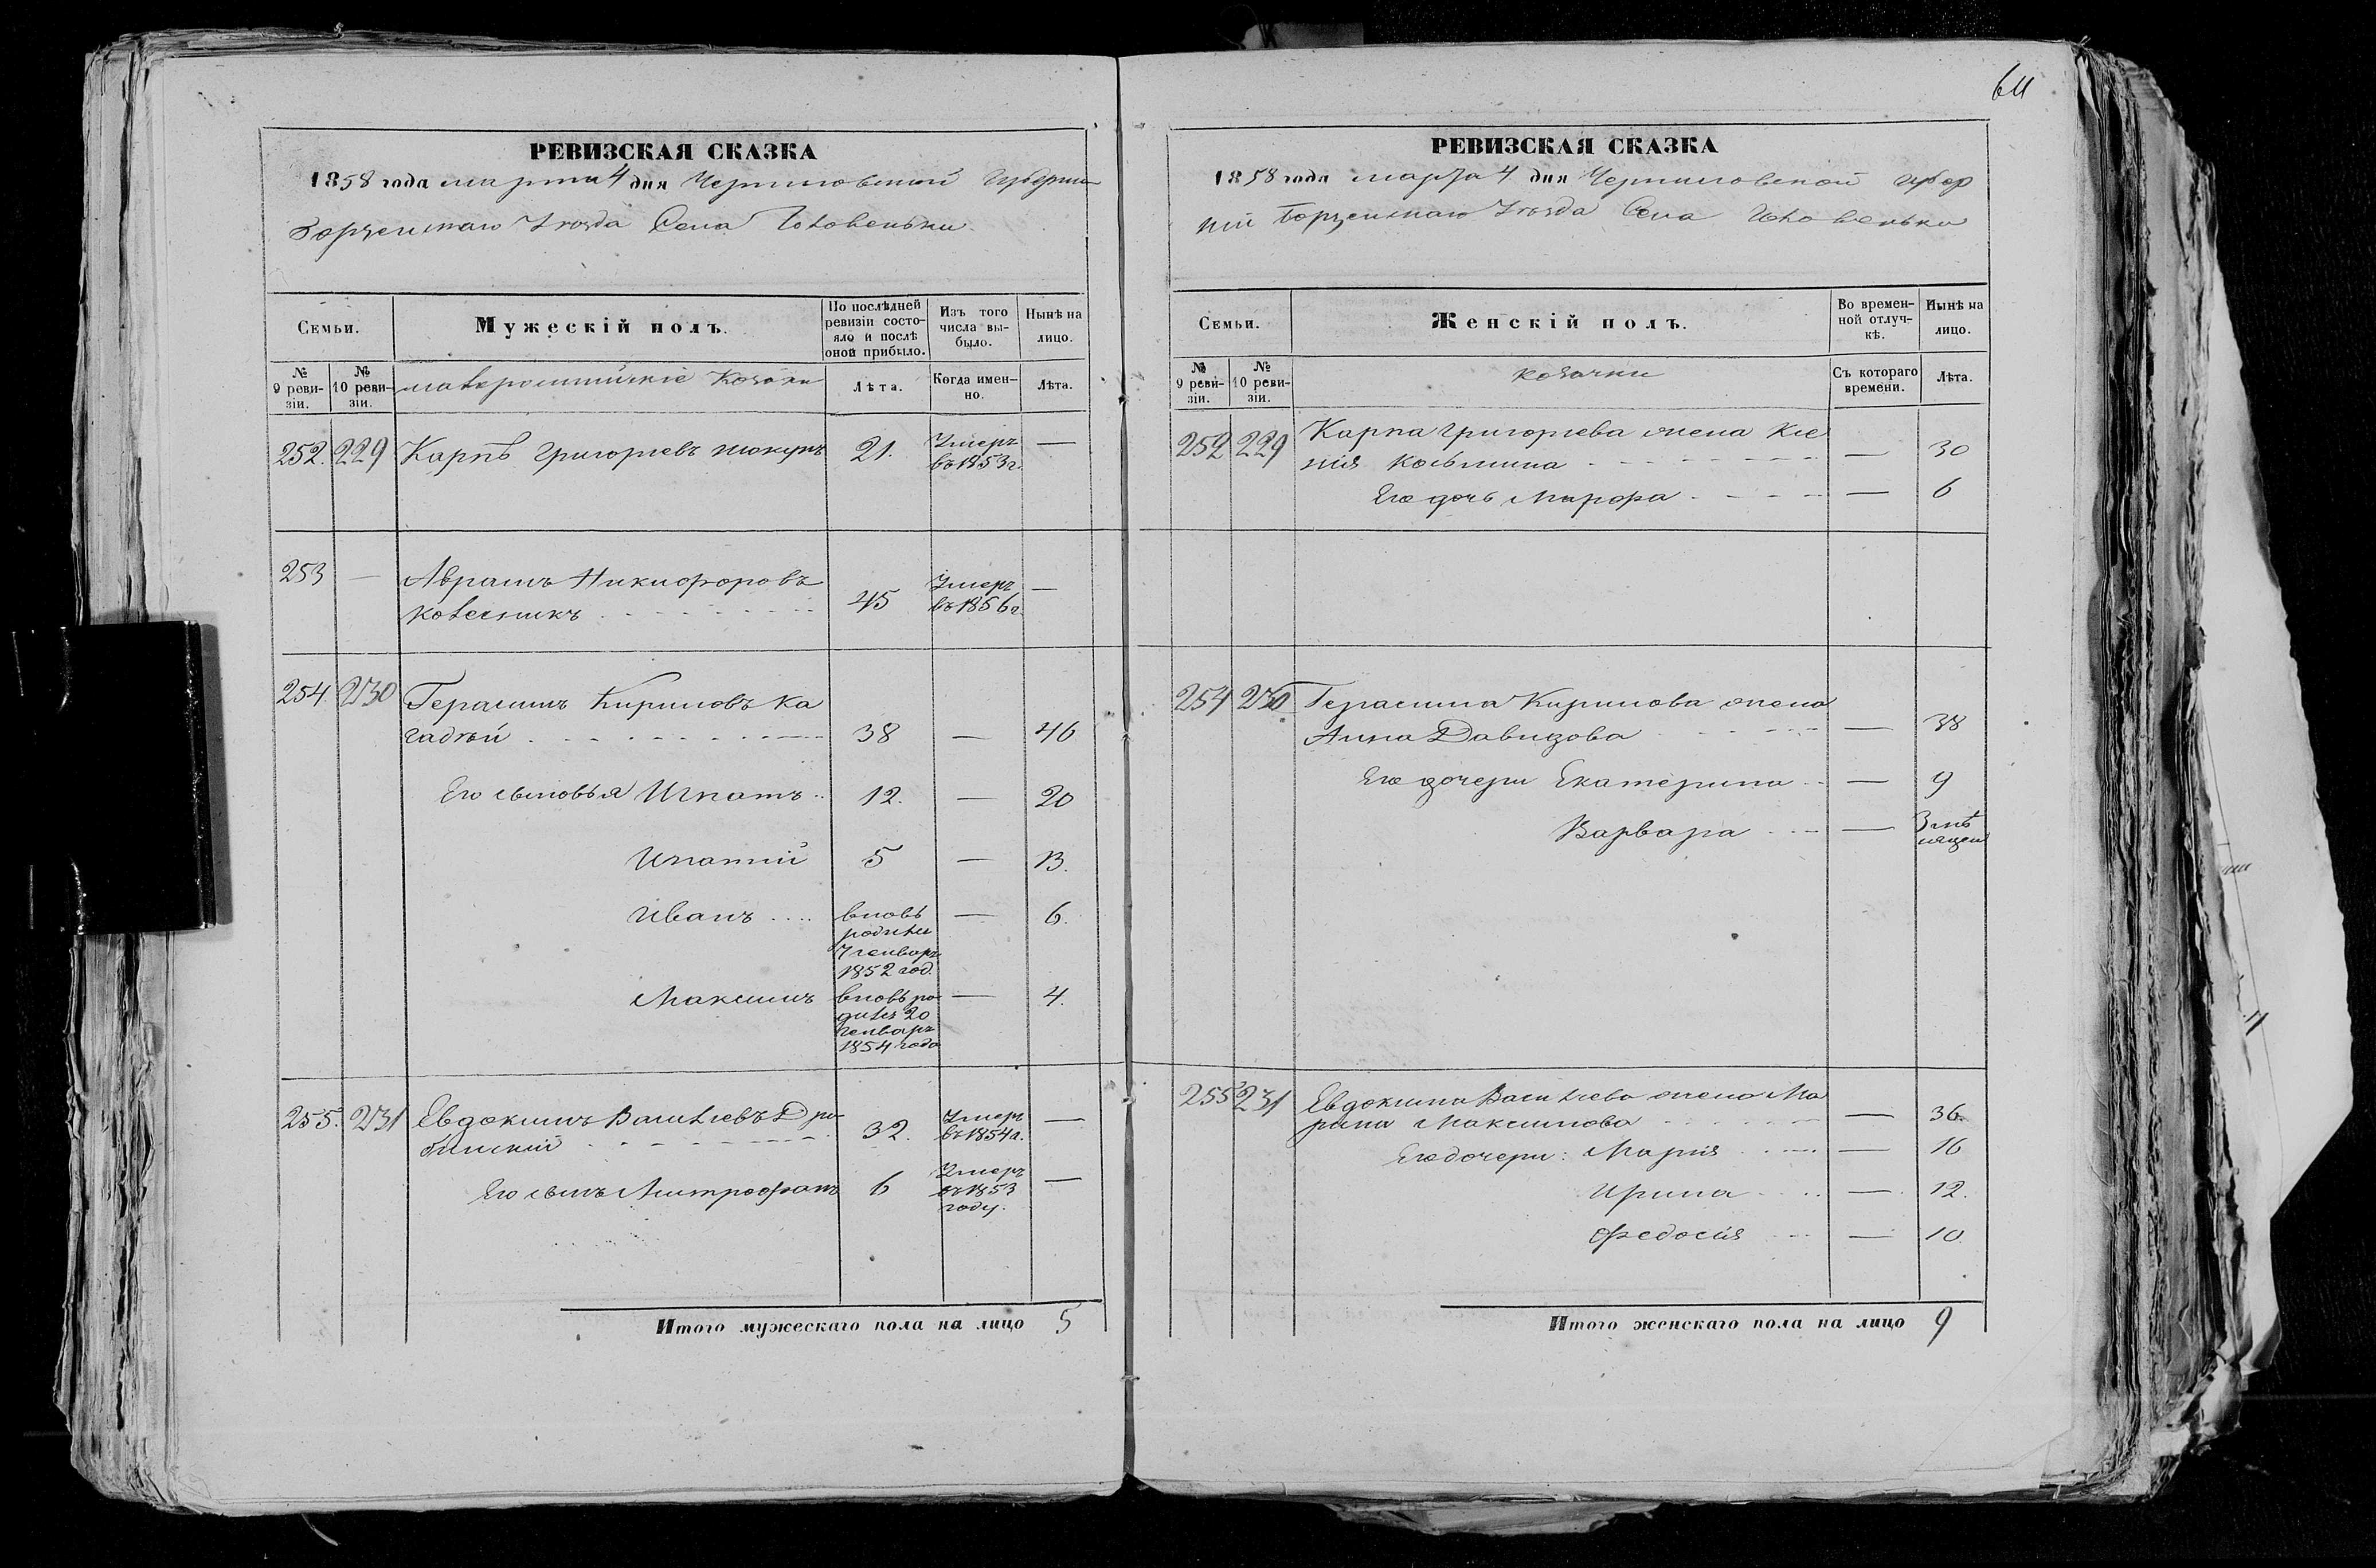 РЕВИЗСКАЯ СКАЗКА
1858 года марта 4 дня Черниговской Губернии
Борзенскаго Уѣзда Села Головеньки
Семьи.
Мужескій полъ.
По послѣдней ревизіи состояло и послѣ оной прибыло.
Изъ того числа выбыло.
Нынѣ на лицо.
№ 9 ревизіи.
№ 10 ревизіи.
малороссийскіе Козаки
Лѣта.
Когда именно.
Лѣта.
252. 229 Карпъ Григорьевъ 21. Умеръ —
въ 1853 г.
253 — Аврамъ Никифоровъ Умеръ
Колесникъ 45 въ 1856 г. —
254. 230 Герасимъ Кириловъ Ка
гадѣй 38 — 46
Его сыновья Игнатъ 12. — 20
Ипатий 5 — 13.
Иванъ вновь — 6.
родился
7 генваря
1852 год.
Максимъ вновь ро — 4.
дился 20
генваря
1854 года
255. 231 Евдокимъ Васильевъ Дро- Умеръ
бинский 32. въ 1854 г. —
Его сынъ Митрофанъ 6 Умеръ —
въ 1853
году.
Итого мужескаго пола на лицо 5
РЕВИЗСКАЯ СКАЗКА
1858 года марта 4 дня Черниговской Губер
нии Борзенскаго Уѣзда Села Головеньки
Семьи.
Женскій полъ.
Во временной отлучкѣ.
Нынѣ на лицо.
№ 9 ревизіи.
№ 10 ревизіи.
козачки
Съ котораго времени.
Лѣта.
252 229 Карпа Григорьева жена Ксе
нія Косьмина — 30
Его дочь Марфа — 6
254 230 Герасима Кирилова жена
Анна Давидова — 38
Его дочери Екатерина — 9
Варвара — 3 мѣ
сяцеи
255 231 Евдокима Васильева жена Ма
рина Максимова — 36.
Его дочери: Марія — 16
Ирина — 12.
Федосія — 10.
Итого женскаго пола на лицо 9